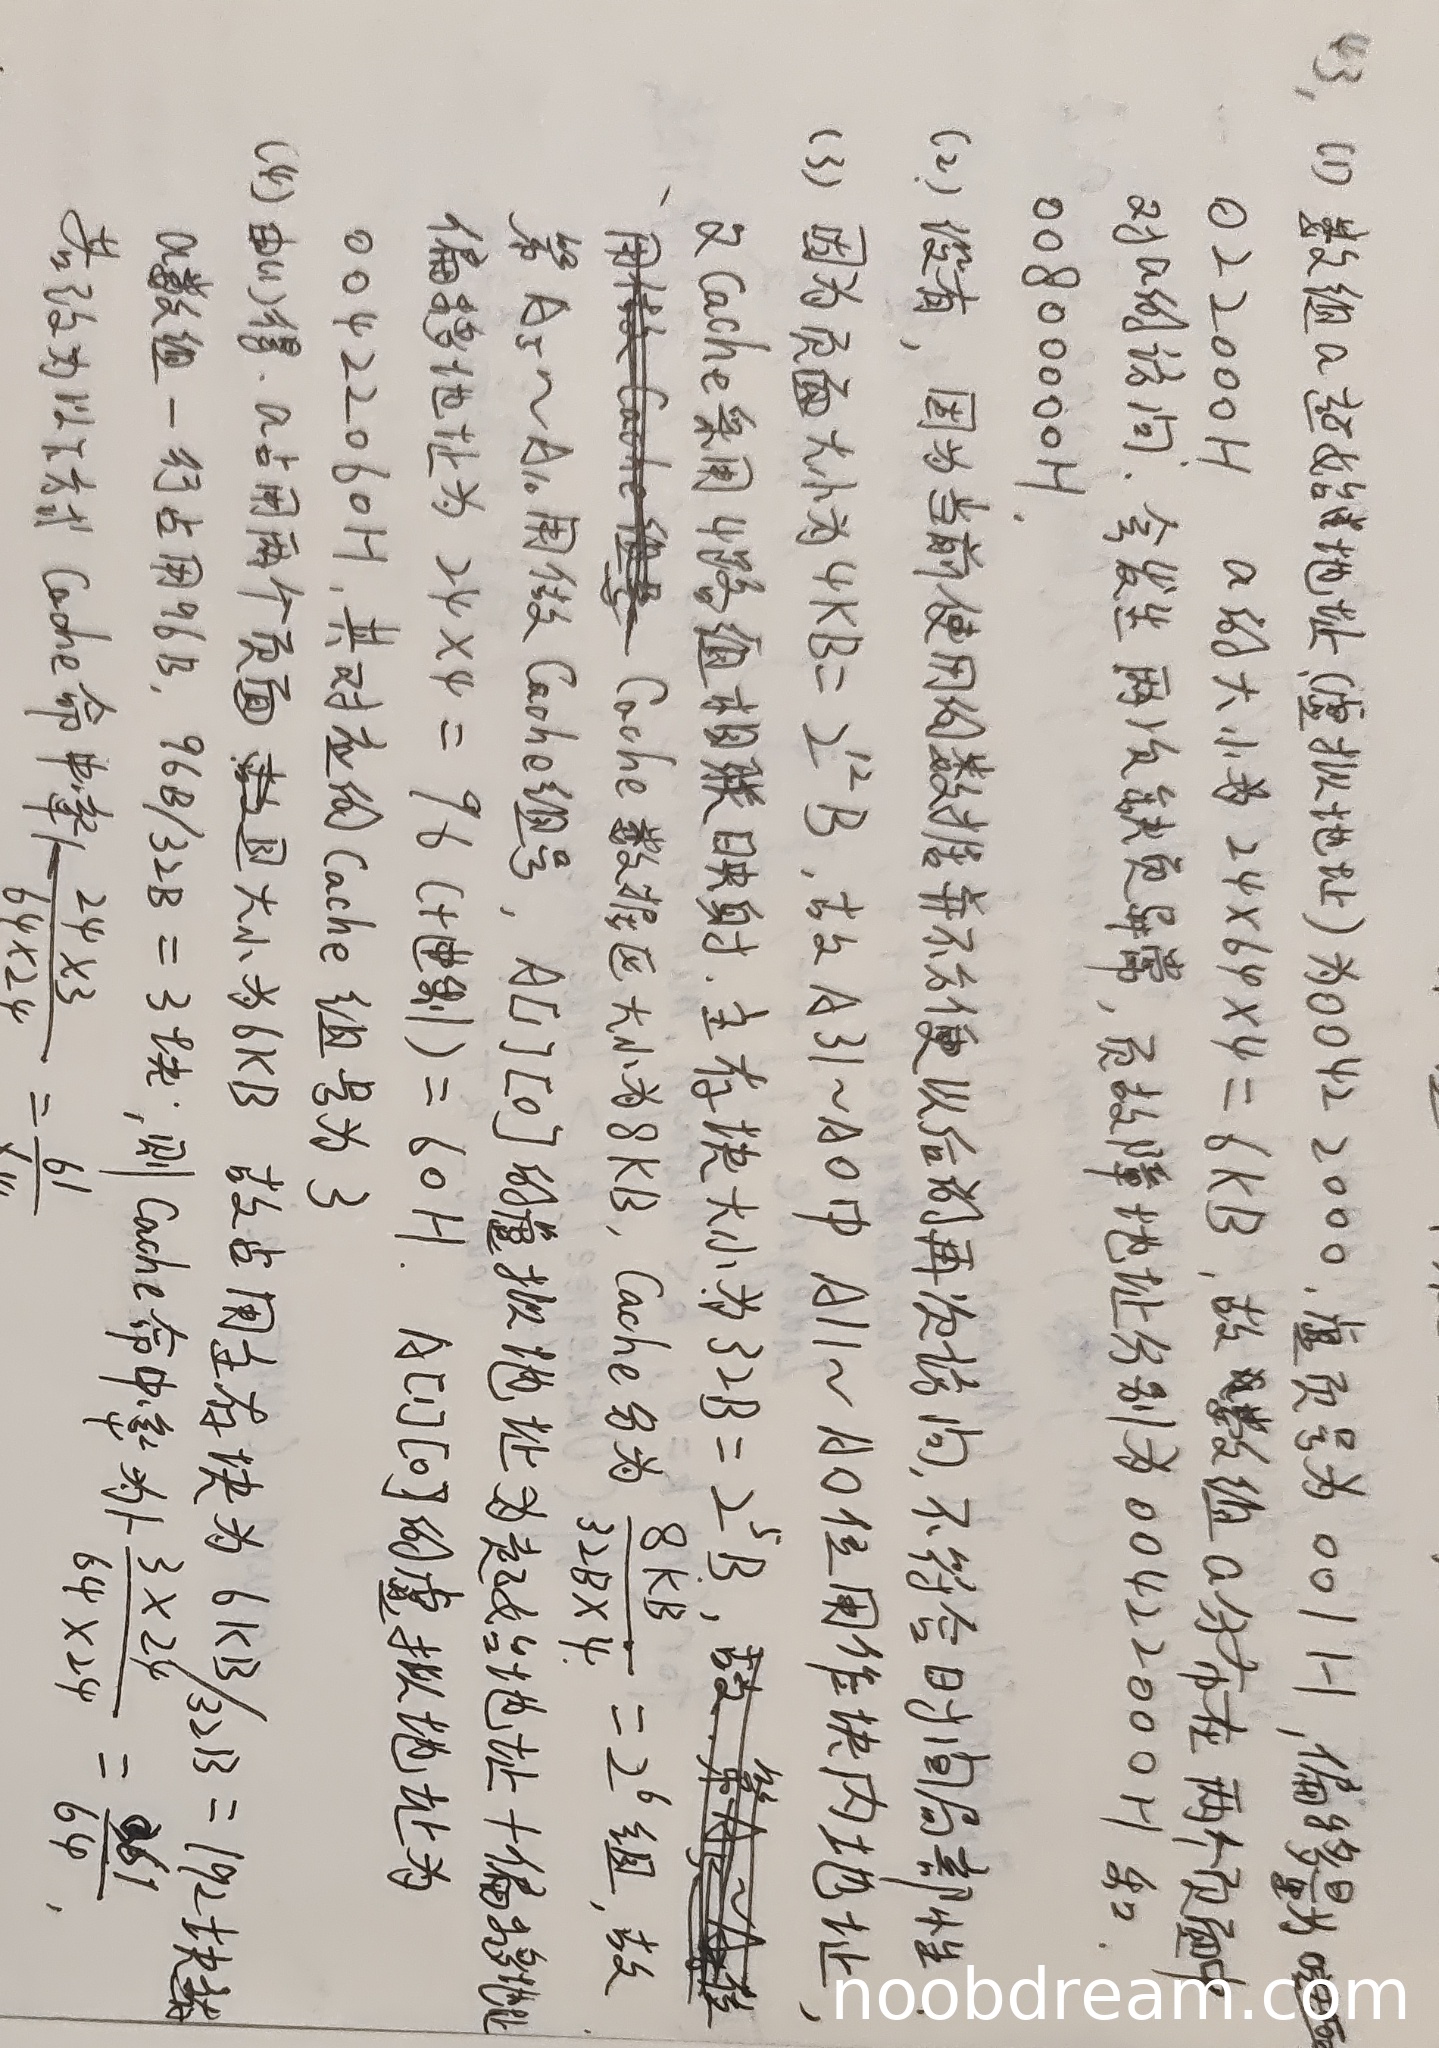 43, (1) 数组a起始地址(虚拟地址)为0042 2000, 虚页号为 001H, 偏移量为
022000H a的大小为 24×64×4 = 6KB, 故数组a分布在两个页面中
对a的访问. 会发生两次缺页异常, 页故障地址分别为 00422000H 和.
00800000H.
(2) 没有, 因为当前使用的数据并不方便以后的再次访问, 不符合时间局部性.
(3) 因为页面大小为4KB = 2¹²B, 故A31~A0中 A11~A0位用作块内地址,
又Cache采用4路组相联映射. 主存块大小为32B = 2⁵B,
Cache数据区大小为8KB, Cache分为 8KB/32B×4 = 2⁶组, 故
第A5~A10用做Cache组号, A[1][0]的虚拟地址为起始地址+偏移地址
偏移地址为 24×4 = 96(十进制) = 60H. A[1][0]的虚拟地址为
00422060H, 其对应的Cache组号为3
(4) 由(1)得. a占用两个页面 且大小为6KB 故占用主存块为 6KB/32B = 192块
a数组一行占用96B, 96B/32B = 3块, 则Cache命中率为1- 3×24/64×24 = 61/64,
若改为以下方式 Cache命中率1- 24×3/64×24 = 61/64
noobdream.com